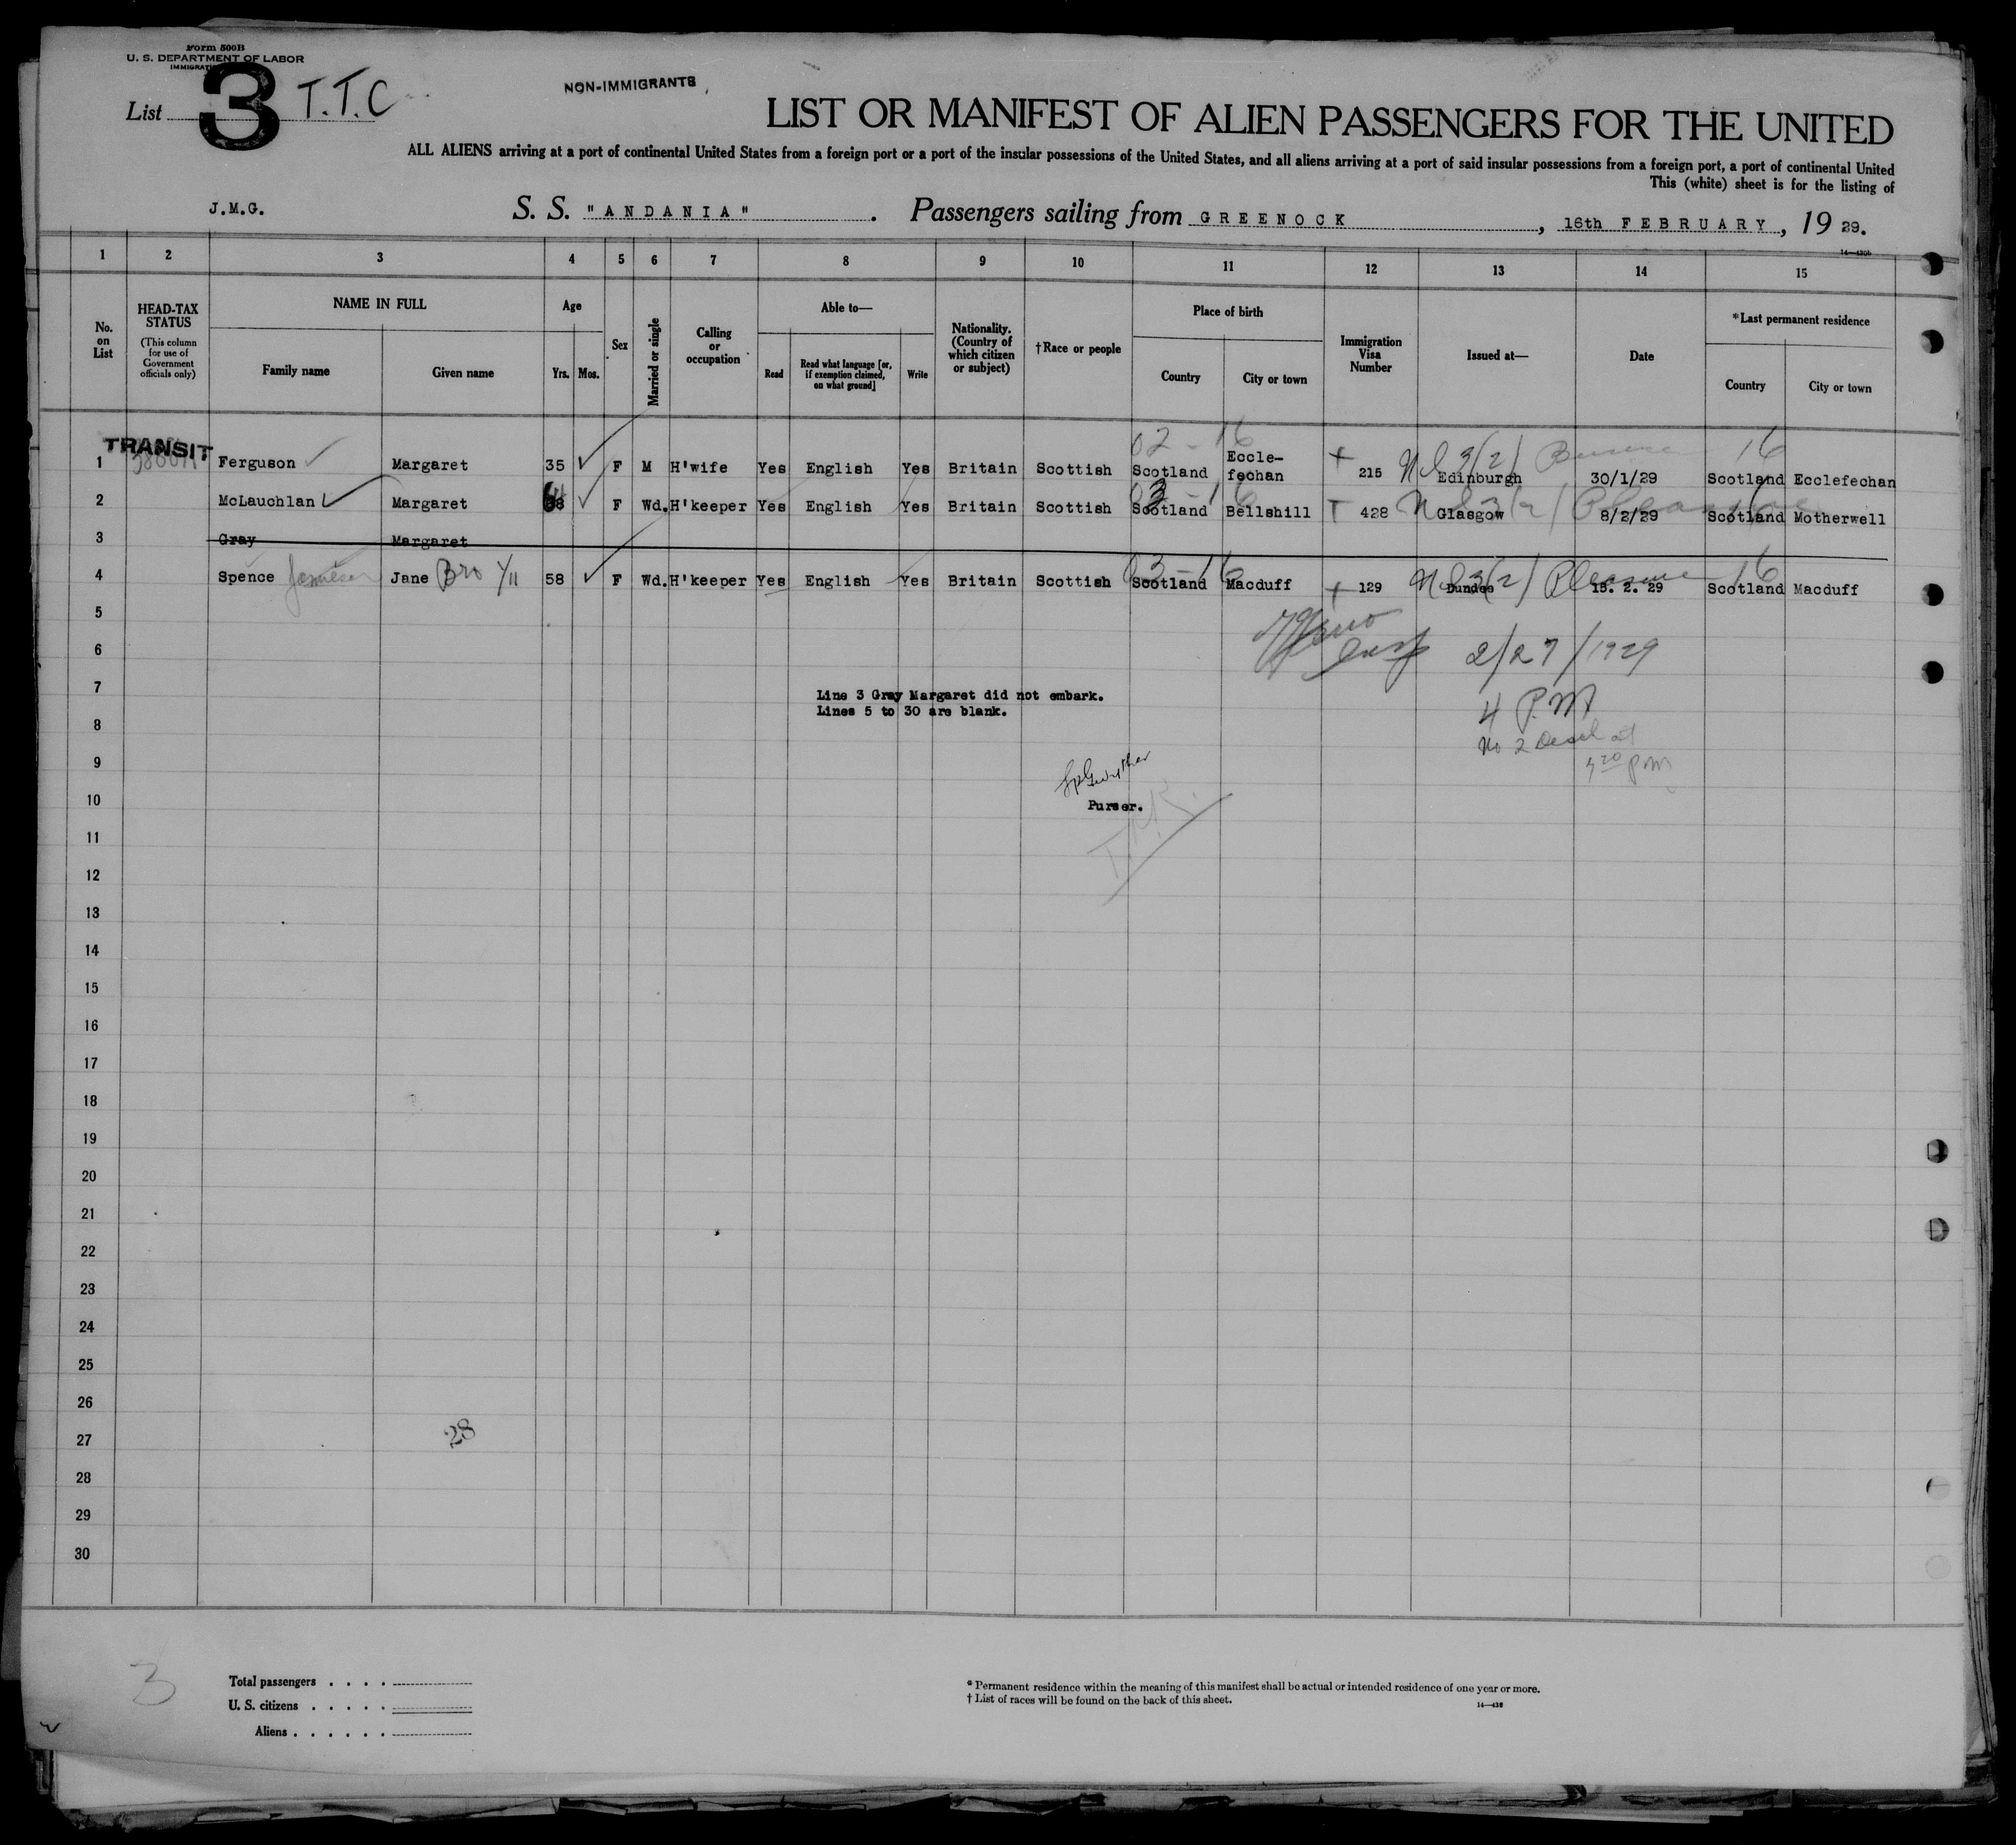 Form 500B
U. S. DEPARTMENT OF LABOR
List 3 T.T.C
NON-IMMIGRANTS
LIST OR MANIFEST OF ALIEN PASSENGERS FOR THE UNITED
ALL ALIENS arriving at a port of continental United States from a foreign port or a port of the insular possessions of the United States, and all aliens arriving at a port of said insular possessions from a foreign port, a port of continental United
This (white) sheet is for the listing of
J.M.G. S. S. "ANDANIA". Passengers sailing from GREENOCK, 16th FEBRUARY, 19 29.
1 2 3 4 5 6 7 8 9 10 11 12 13 14 15
No. on List
HEAD-TAX STATUS
(This column for use of Government officials only)
NAME IN FULL
Family name Given name
Age
Yrs. Mos.
Sex
Married or single
Calling or occupation
Able to—
Read
Read what language [or, if exemption claimed, on what ground]
Write
Nationality. (Country of which citizen or subject)
†Race or people
Place of birth
Country City or town
Immigration Visa Number
Issued at—
Date
*Last permanent residence
Country City or town
TRANSIT
02 - 16 16
1 Ferguson Margaret 35 F M H'wife Yes English Yes Britain Scottish Scotland Eccle-fechan 215 Edinburgh 30/1/29 Scotland Ecclefechan
2 McLauchlan Margaret F Wd. H'keeper Yes English Yes Britain Scottish Scotland Bellshill 428 Glasgow 8/2/29 Scotland Motherwell
3 Gray Margaret
03 - 16 3(2) Pleasure 16
4 Spence Jamieson Jane Bro 58 F Wd. H'keeper Yes English Yes Britain Scottish Scotland Macduff 129 Dundee 15. 2. 29 Scotland Macduff
5
6 2/27/1929
7 Line 3 Gray Margaret did not embark.
Lines 5 to 30 are blank.
4 P.M
8
No 2
9
10 Purser.
11
12
13
14
15
16
17
18
19
20
21
22
23
24
25
26
27 28
28
29
30
3
Total passengers . . . .
U. S. citizens . . . . .
Aliens . . . . . .
* Permanent residence within the meaning of this manifest shall be actual or intended residence of one year or more.
† List of races will be found on the back of this sheet.